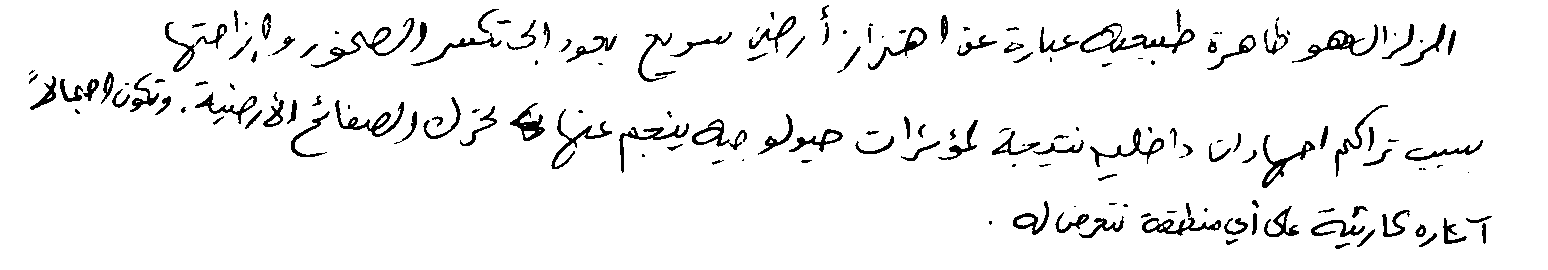 الزلزال هو ظاهرة طبيعية عبارة عن اهتزاز أرضي سريع يعود إلى تكسر الصخور وإزاحتها
بسبب تراكم اجهادات داخلية نتيجة لمؤثرات جيولوجية ينجم عنها تحرك الصفائح الأرضية. وتكون اجمالاً
آثاره كارثية على أي منطقة تتعرض له .